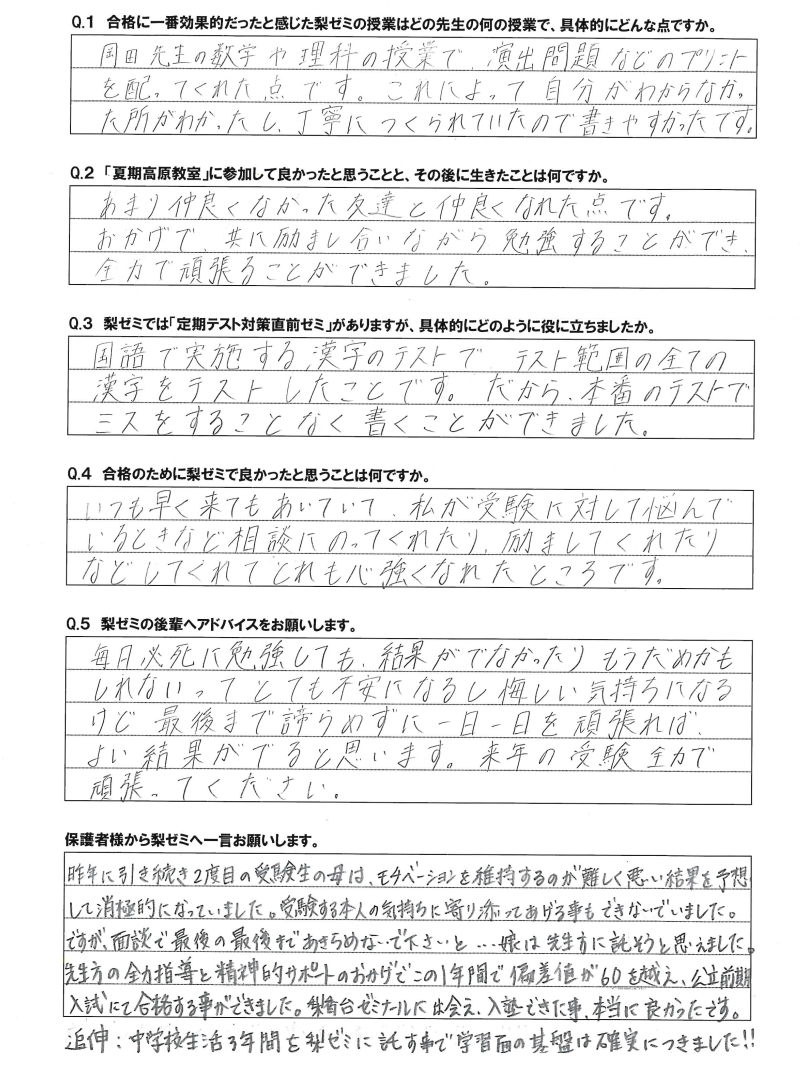 Q.1 合格に一番効果的だったと感じた梨ゼミの授業はどの先生の何の授業で、具体的にどんな点ですか。
岡田先生の数学や理科の授業で、演出問題などのプリント
を配ってくれた点です。これによって自分がわからなかっ
た所がわかったし、丁寧につくられていたので書きやすかったです。
Q.2 「夏期高原教室」に参加して良かったと思うことと、その後に生きたことは何ですか。
あまり仲良くなかった友達と仲良くなれた点です。
おかげで、共に励まし合いながら勉強することができ、
全力で頑張ることができました。
Q.3 梨ゼミでは「定期テスト対策直前ゼミ」がありますが、具体的にどのように役に立ちましたか。
国語で実施する漢字のテストで テスト範囲の全ての
漢字をテストしたことです。だから、本番のテストで
ミスをすることなく書くことができました。
Q.4 合格のために梨ゼミで良かったと思うことは何ですか。
いつも早く来てもあいていて、私が受験に対して悩んで
いるときなど相談にのってくれたり、励ましてくれたり
などしてくれてとれも心強くなれたところです。
Q.5 梨ゼミの後輩へアドバイスをお願いします。
毎日必死に勉強しても、結果がでなかったり もうだめかも
しれないってとても不安になるし悔しい気持ちになる
けど 最後まで諦らめずに一日一日を頑張れば、
よい結果がでると思います。来年の受験 全力で
頑張ってください。
保護者様から梨ゼミへ一言お願いします。
昨年に引き続き2度目の受験生の母は、モチベーションを維持するのが難しく悪い結果を予想
して消極的になっていました。受験する本人の気持ちに寄り添ってあげる事もできないでいました。
ですが、面談で最後の最後まであきらめないで下さいと…娘は先生方に託そうと思えました。
先生方の全力指導と精神的サポートのおかげでこの1年間で偏差値が60を越え、公立前期
入試にて合格する事ができました。梨香台ゼミナールに出会え、入塾できた事、本当に良かったです。
追伸：中学校生活3年間を梨ゼミに託す事で学習面の基盤は確実につきました!!